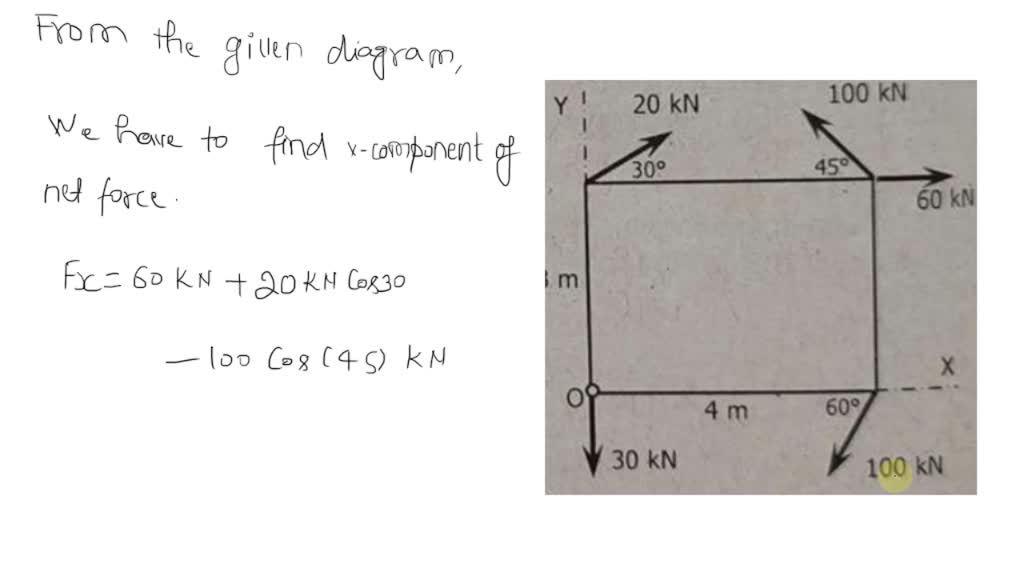 From the given diagram,
We have to find x-component of
net force.
Fx = 60 KN + 20 KN Cos30
— 100 Cos (45) KN
Y
20 kN
100 kN
30°
45°
60 kN
m
X
O
4 m
60°
30 kN
100 kN